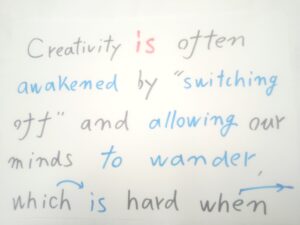 Creativity is often
awakened by "switching
off" and allowing our
minds to wander,
which is hard when